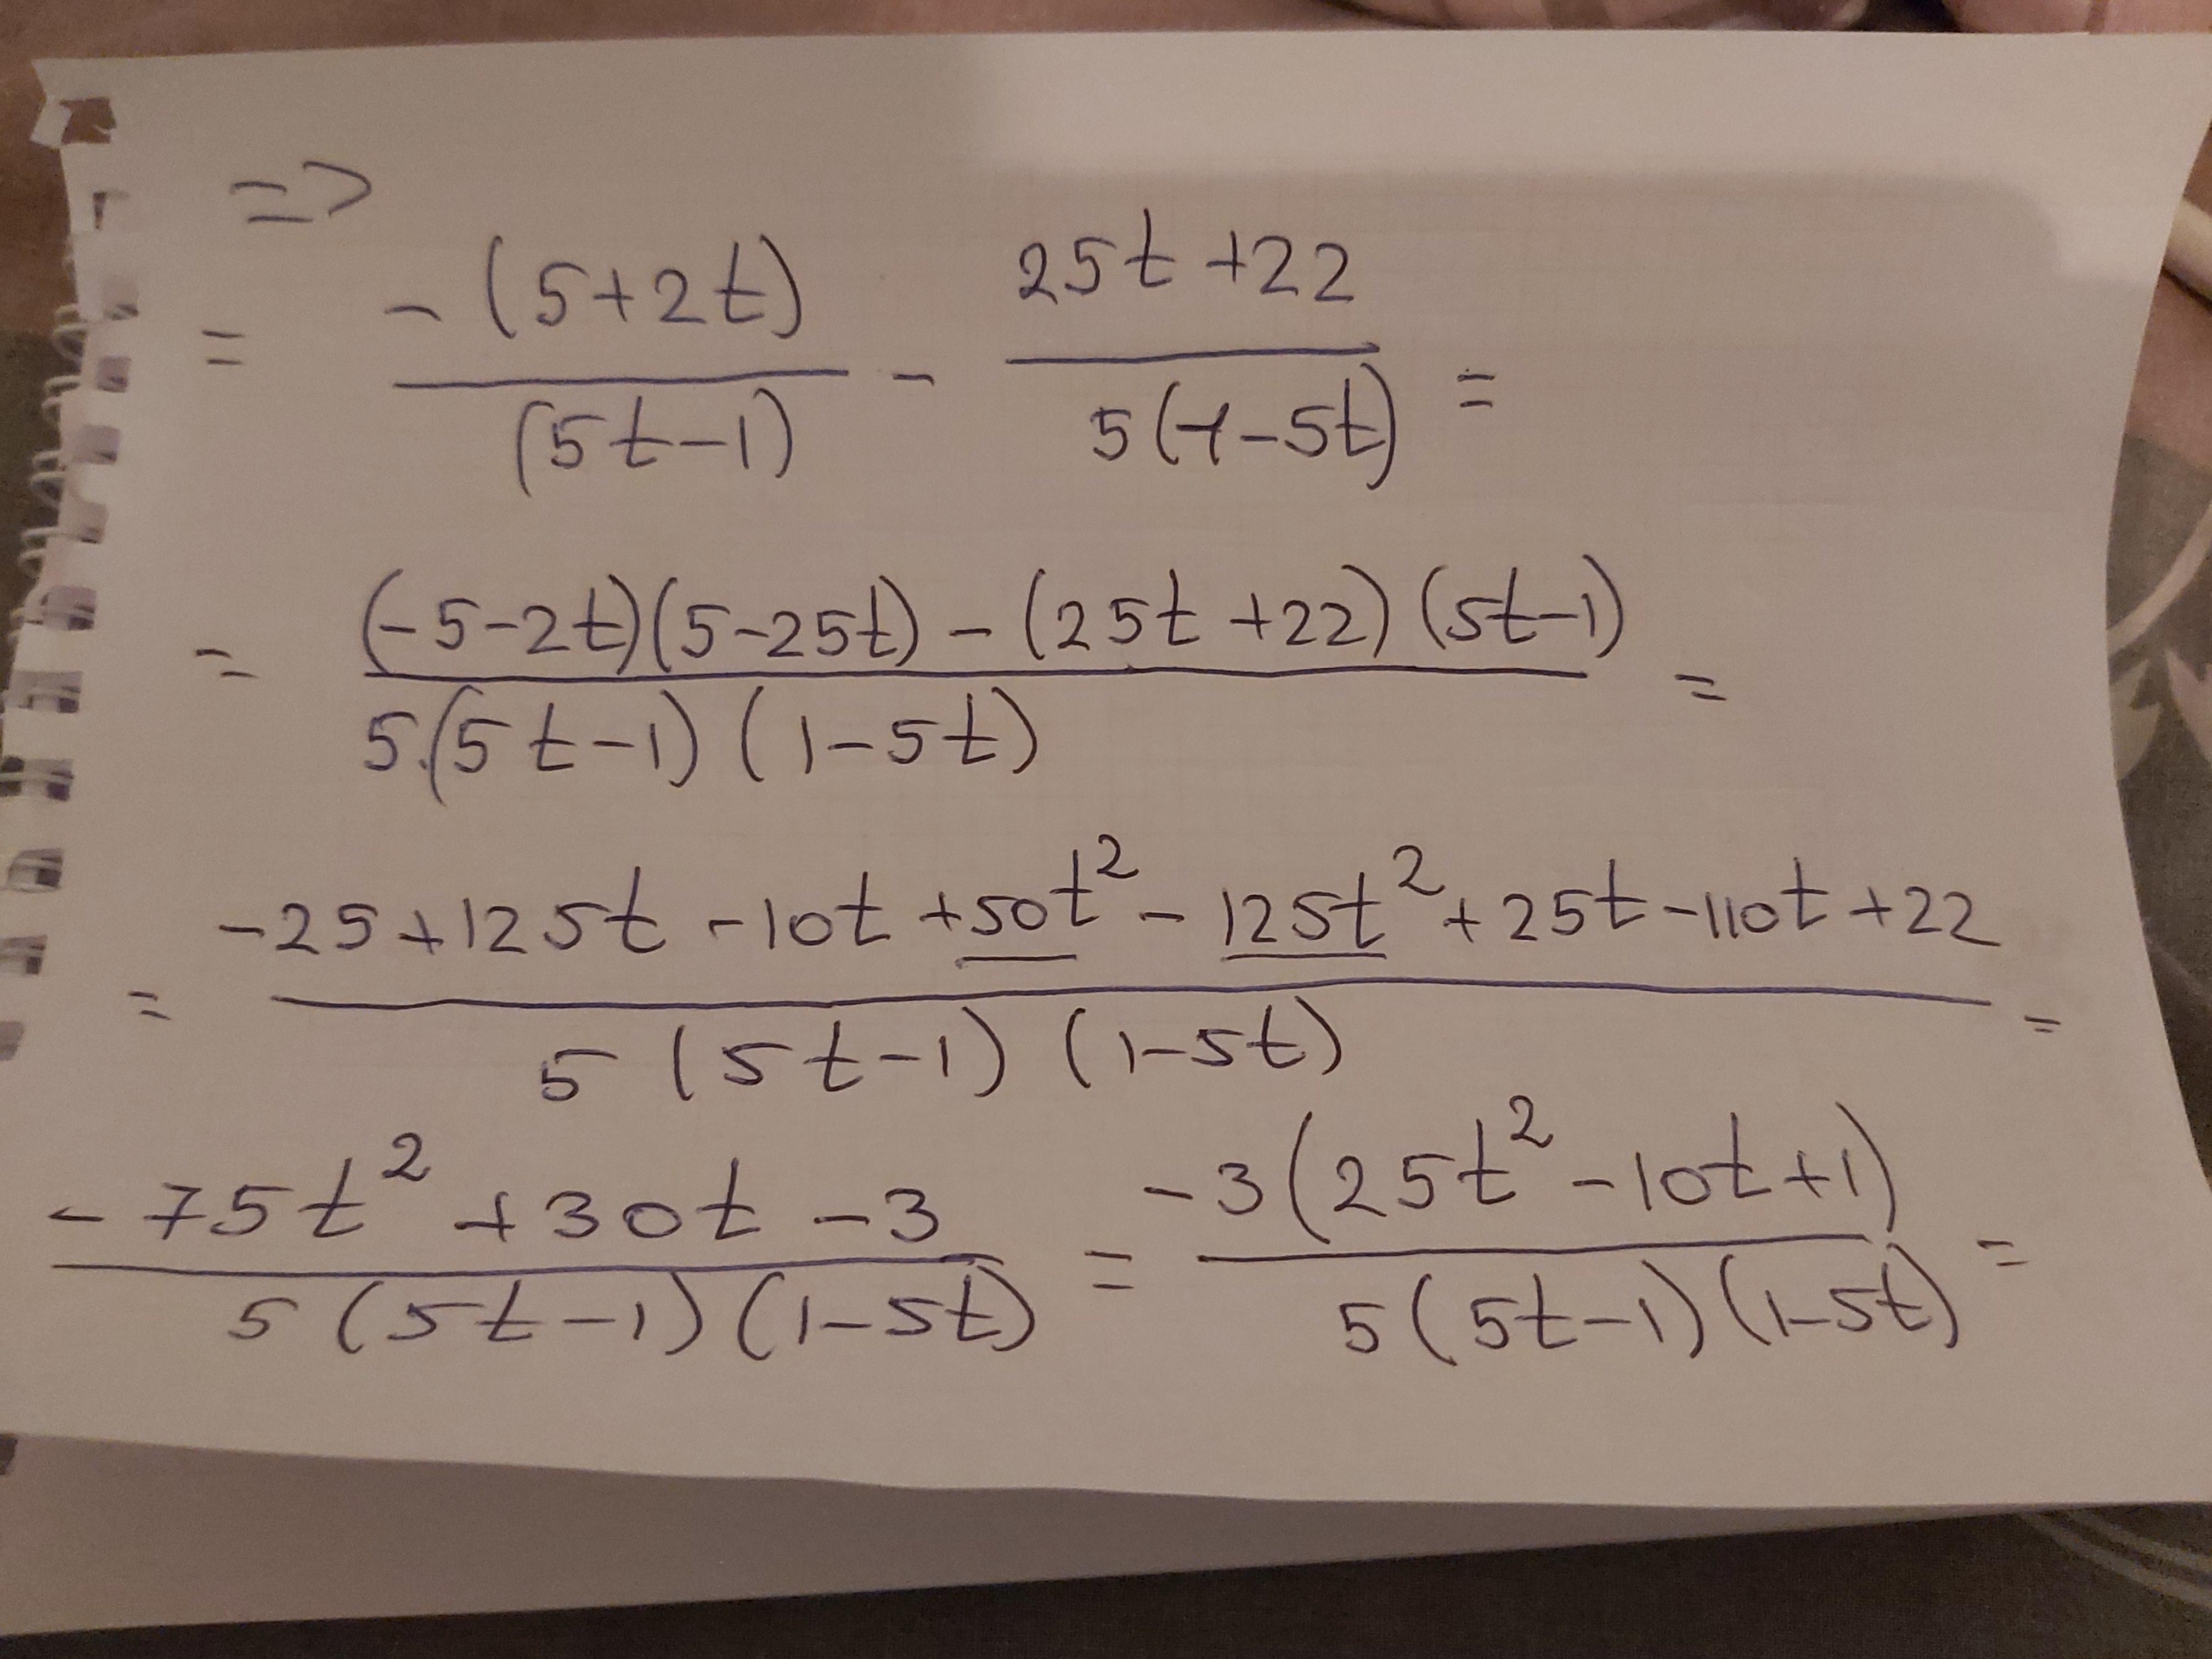 =>
= -(5+2t)/(5t-1) - (25t+22)/(5(1-5t)) =
= ((-5-2t)(5-25t)-(25t+22)(5t-1))/(5·(5t-1)(1-5t)) =
= (-25+125t-10t+50t²-125t²+25t-110t+22)/(5(5t-1)(1-5t)) =
(-75t²+30t-3)/(5(5t-1)(1-5t)) = (-3(25t²-10t+1))/(5(5t-1)(1-5t)) =